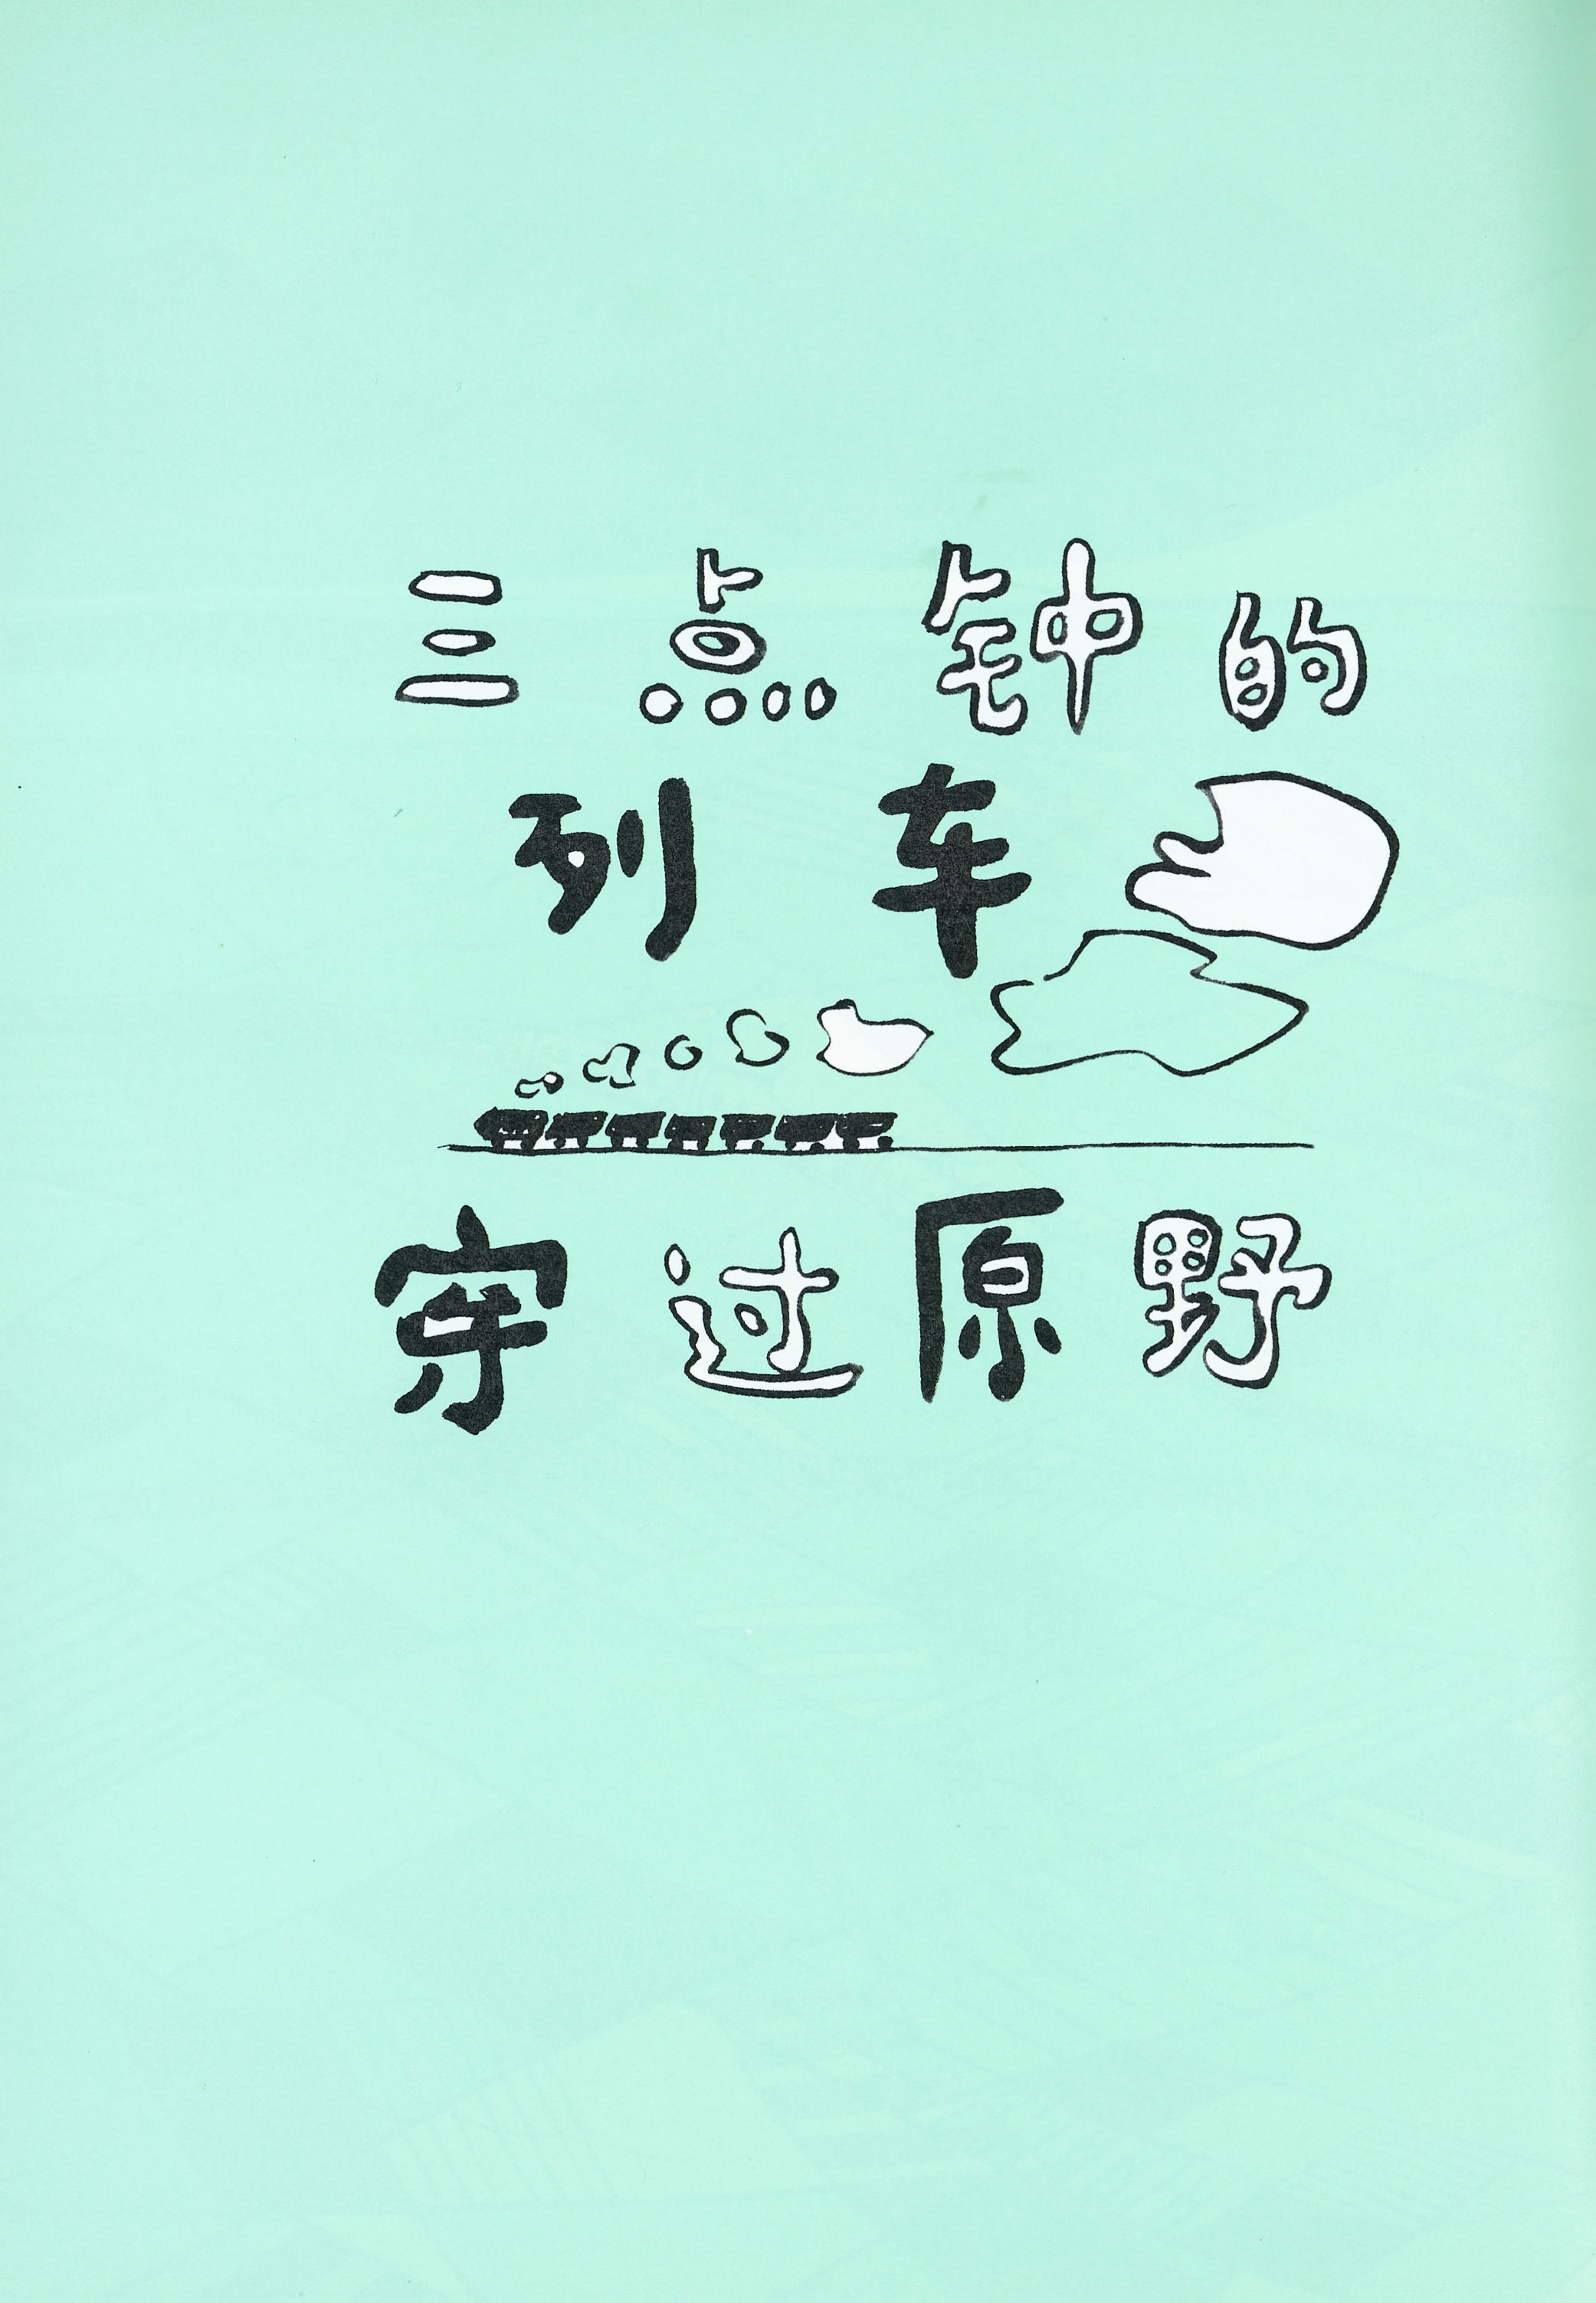 三点钟的
列车
穿过原野